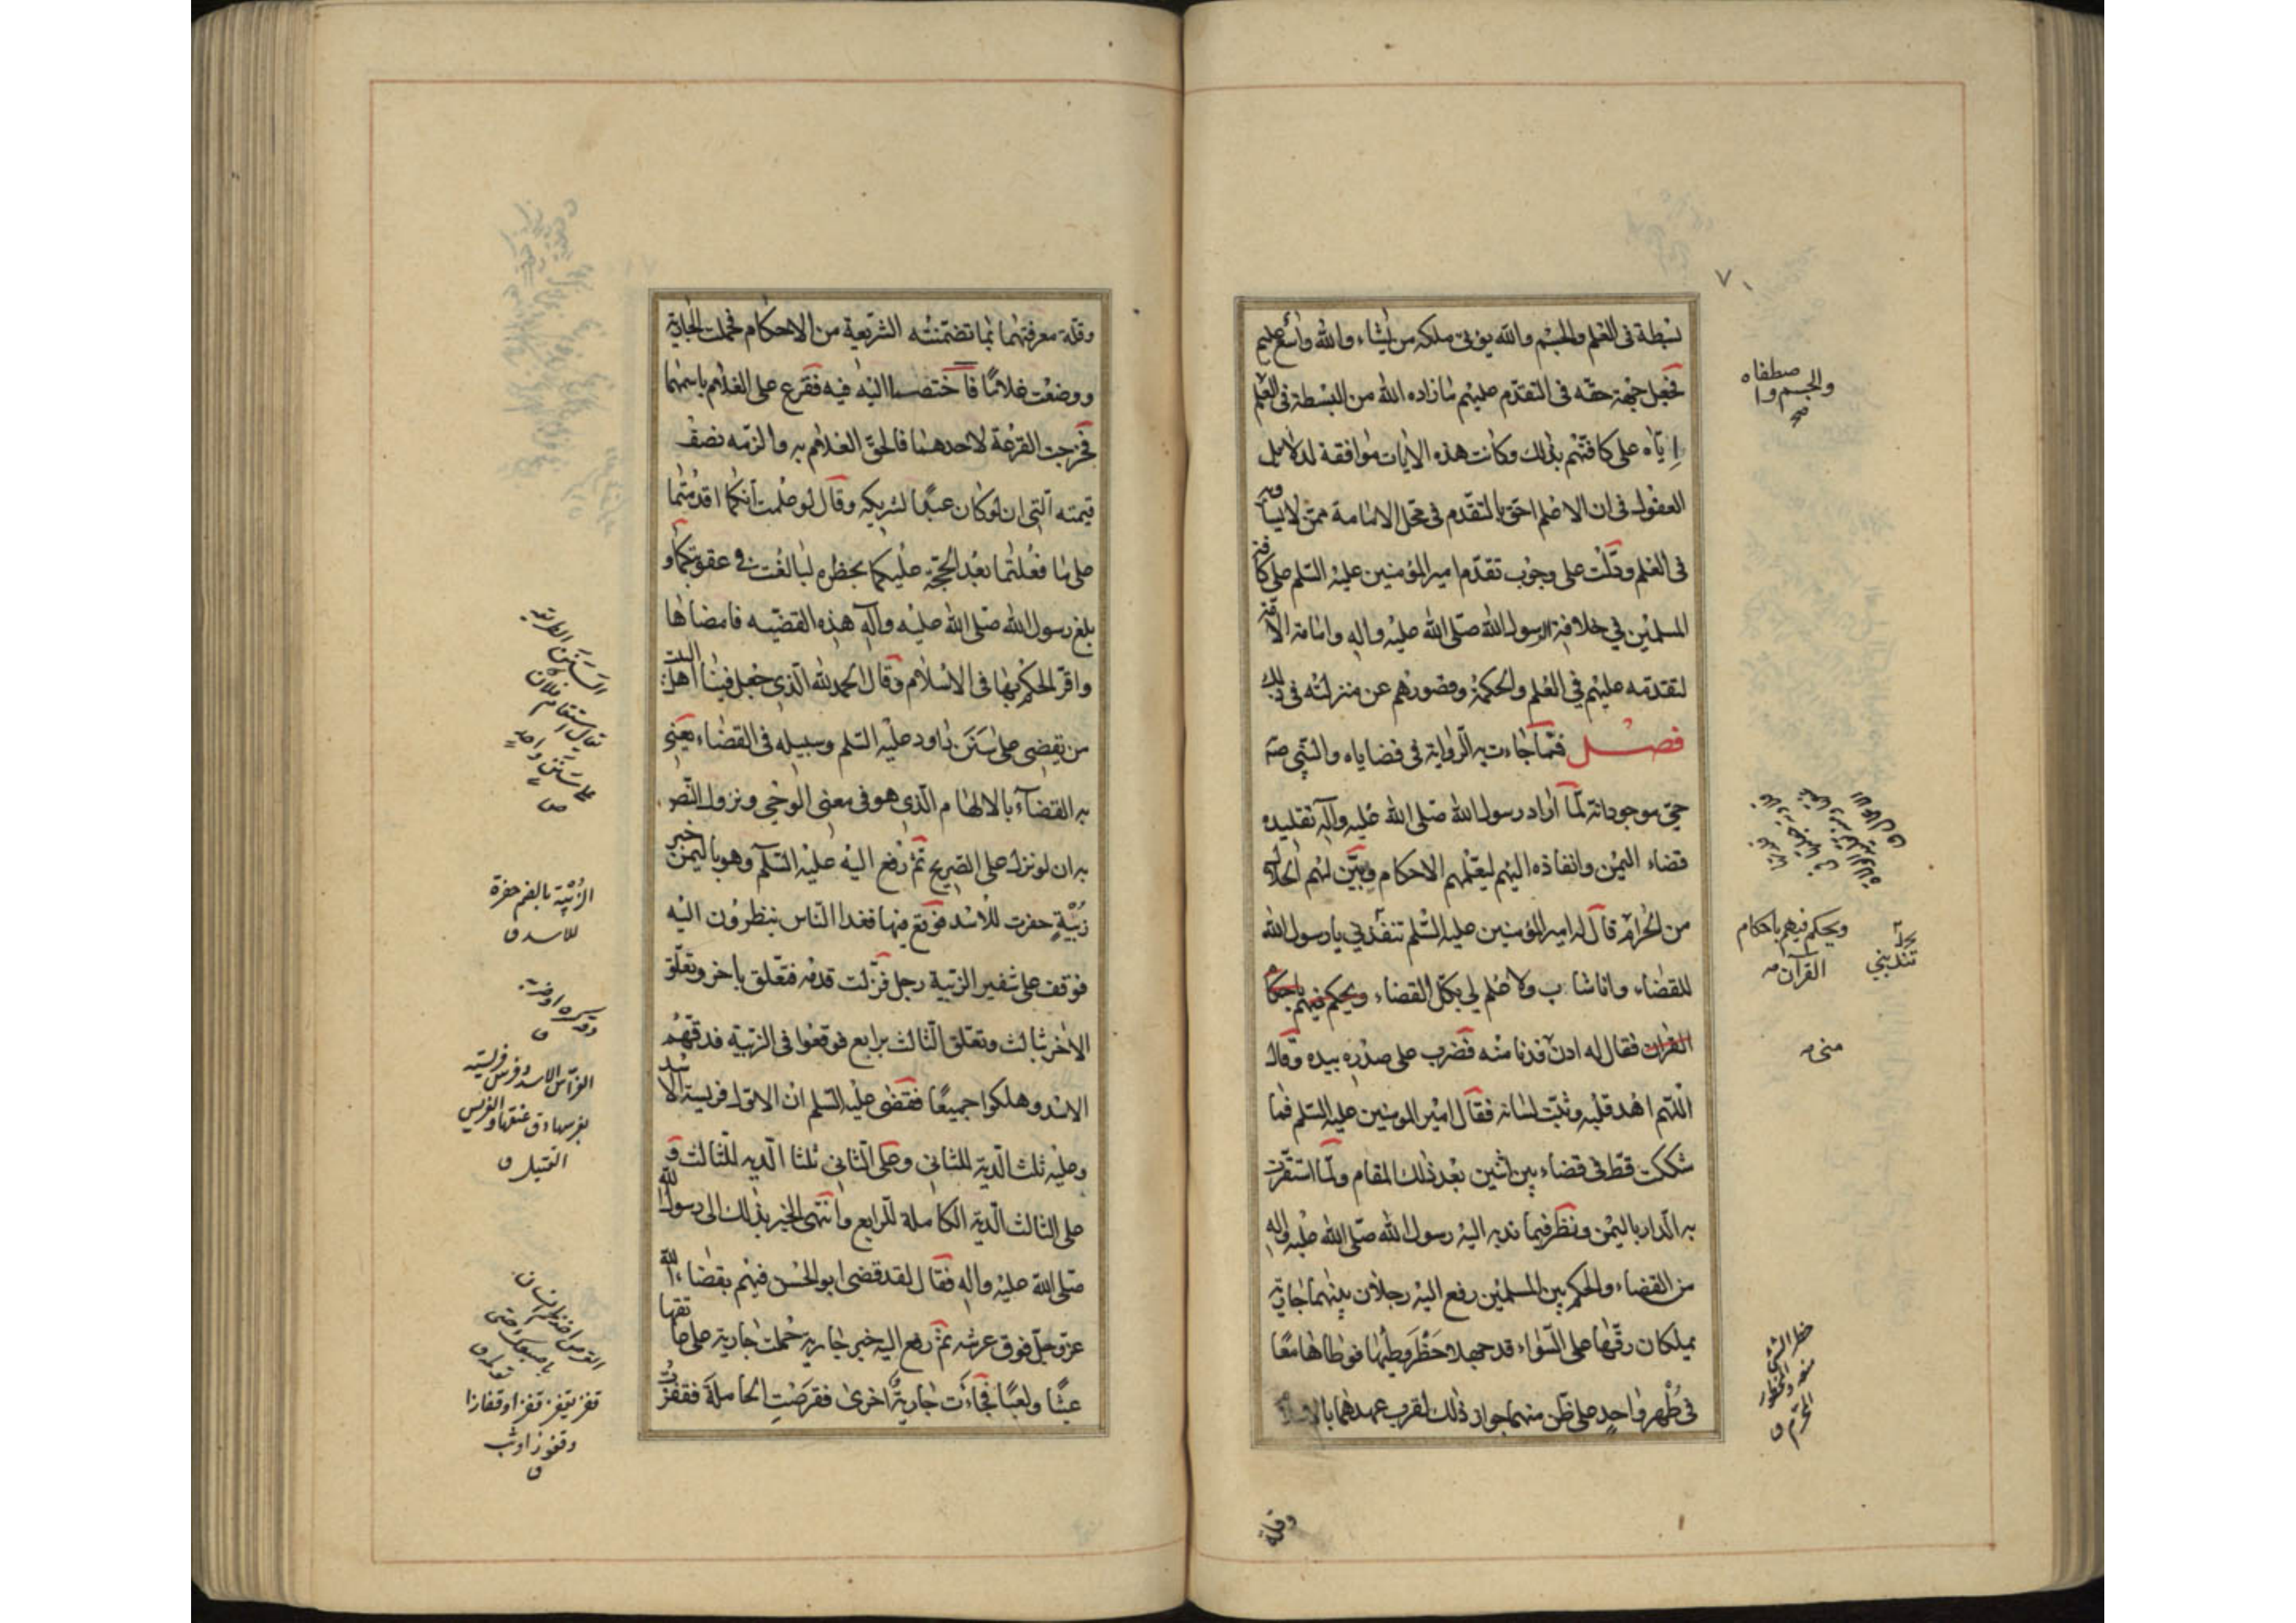 ٧١
بسطة فى العلم والجسم والله يؤتى ملكه من يشاء والله واسع عليم
فجعل جهة حقه فى التقدم عليهم ما زاده الله من البسطة فى العلم
اياه على كافتهم بذلك وكانت هذه الايات موافقة لدلائل
العقول فى ان الاعلم احق بالتقدم فى محل الامامة ممن لا يساويه
فى العلم ودلت على وجوب تقدم امير المؤمنين عليه السلم على كافة
المسلمين في خلافة الرسول الله صلى الله عليه واله وامامة الامة
لتقدمه عليهم في العلم والحكمة وقصورهم عن منزلته فى ذلك
فصل فمما جاءت به الرواية فى قضاياه والنبى صه
حى موجود انه لما اراد رسول الله صلى الله عليه واله تقليده
قضاء اليمن وانفاذه اليهم ليعلمهم الاحكام ويبين لهم الحلال
من الحرام قال له امير المؤمنين عليه السلم تنفذني يا رسول الله
للقضاء وانا شاب ولا علم لي بكل القضاء ويحكم فيهم باحكام
القران فقال له ادن فدنا منه فضرب على صدره بيده وقال
اللهم اهد قلبه وثبت لسانه فقال امير المومنين عليه السلم فما
شككت قط فى قضاء بين اثنين بعد ذلك المقام ولما استقرت
به الدار باليمن ونظر فيما ندبه اليه رسول الله صلى الله عليه واله
من القضاء والحكم بين المسلمين رفع اليه رجلان بينهما جارية
يملكان رقها على السواء قد جهلا حظر وطيها فوطاها معا
فى طهر واحد على ظن منهما جواز ذلك لقرب عهدهما بالاسلام
وقلة
والجسم واصطفاه
صح
ويحكم فيهم باحكام
القرآن صه
تندبني
منى صه
حظر الشئ
منعه والمحظور
المحرم ق
وقلة معرفتهما بما تضمنته الشريعة من الاحكام فحملت الجارية
ووضعت غلاما فاختصما اليه فيه فقرع على الغلام باسمهما
فخرجت القرعة لاحدهما فالحق الغلام به والزمه نصف
قيمته التى ان لو كان عبدا لشريكه وقال لو علمت انكما اقدمتما
على ما فعلتما بعد الحجة عليكما بحظره لبالغت في عقوبتكما و
بلغ رسول الله صلى الله عليه واله هذه القضيه فامضاها
واقر الحكم بها فى الاسلام وقال الحمد لله الذى جعل فينا اهل البيت
من يقضى على سنن داود عليه السلم وسبيله فى القضاء يعنى
به القضآء بالالهام الذى هو فى معنى الوحى ونزول النص
به ان لو نزل على الصريح ثم رفع اليه عليه السلم وهو باليمن خبر
زبية حفرت للاسد فوقع فيها فغدا الناس ينظرون اليه
فوقف على شفير الزبية رجل فزلت قدمه فتعلق باخر وتعلق
الاخر بثالث وتعلق الثالث برابع فوقعوا فى الزبية فدقهم
الاسد وهلكوا جميعا فقضى عليه السلم ان الاول فريسة الاسد
وعليه ثلث الدية للثانى وعلى الثانى ثلثا الديه للثالث و
على الثالث الدية الكاملة للرابع وانتهى الخبر بذلك الى رسول الله
صلى الله عليه واله فقال لقد قضى ابو الحسن فيهم بقضاء الله
عز وجل فوق عرشه ثم رفع اليه خبر جارية حملت جارية على عاتقها
عبثا ولعبا فجاءت جارية اخرى فقرصت الحاملة فقفزت
السنن الطريقة
يقال استقام فلان
على سنن واحد
ص
الزبية بالضم حفرة
للاسد ق
الفراس الاسد وفرس فريسته
يفرسها دق عنقها والفريس
القتيل ق
قفز يقفز قفزا وقفازا
وقفوزا وثب
ق